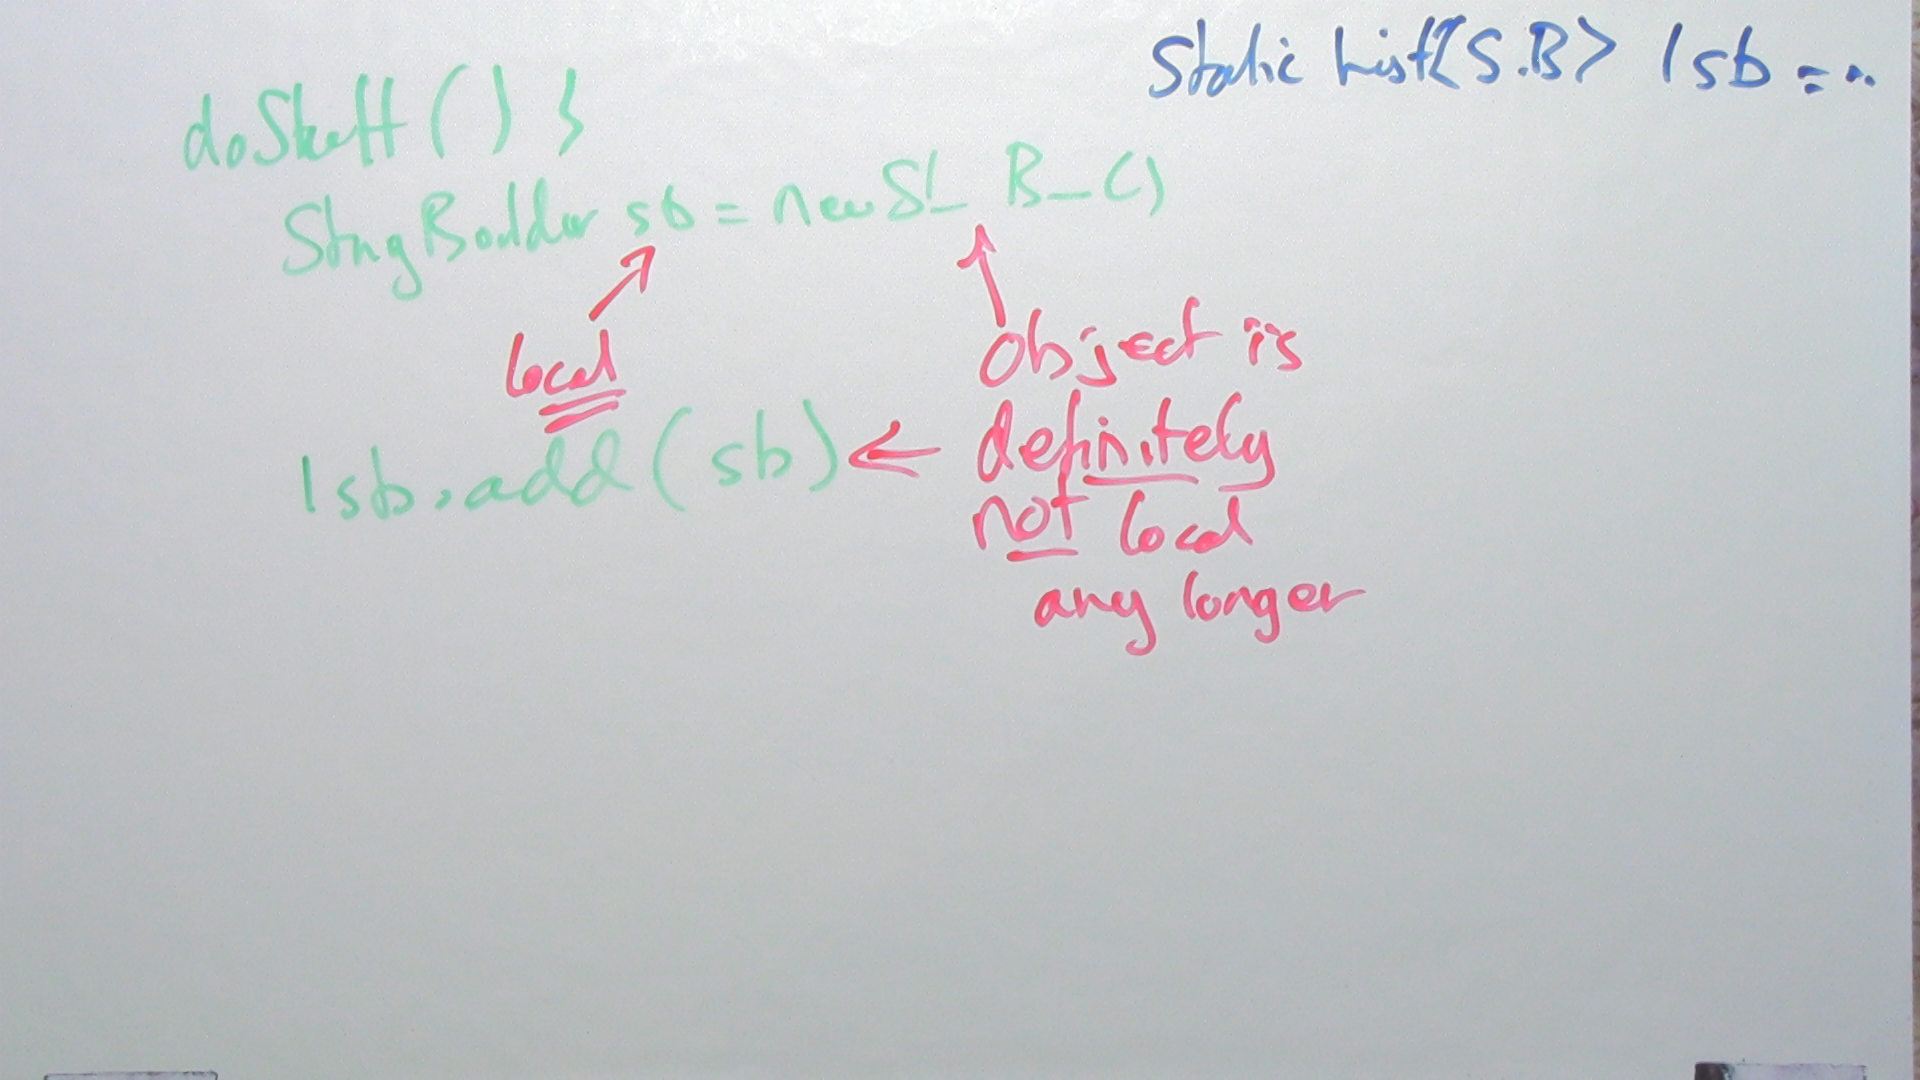 static List<S.B> lsb = ..
doStuff() {
StringBuilder sb = new St_ B_()
local
Object is
definitely
not local
any longer
lsb.add(sb)